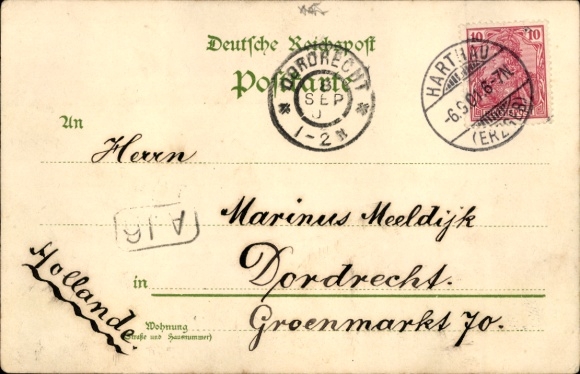 Deutsche Reichspost
Postkarte
10 10
HARTHAU
6-7N.
(ERZGEB)
DORDRECHT
SEP
1-2 N
An
Herrn
Marinus Meeldijk
A 16
Hollande.
in Dordrecht.
Wohnung
(Straße und Hausnummer)
Groenmarkt 70.